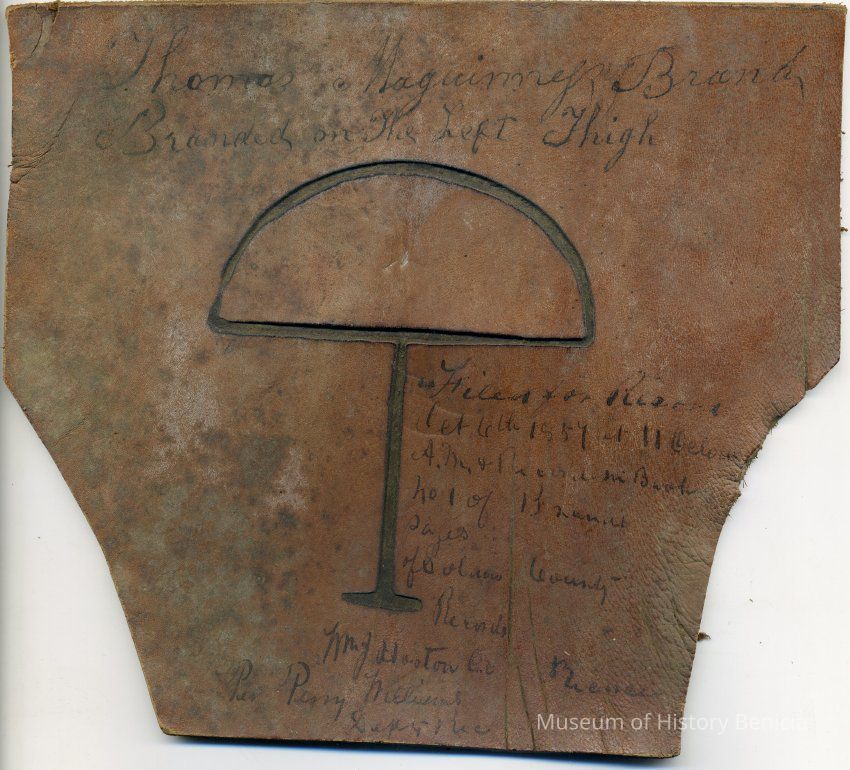 Thomas Maguinness Brand
Branded on The Left Thigh
Filed for Record
Oct 6th 1857 at 11 Oclock
A.M. & Record in Book
No 1 of Brands
pages
of Solano County
Records
Wm J Hooton Co
Per Perry Williams
Dept Rec
Museum of History Benicia